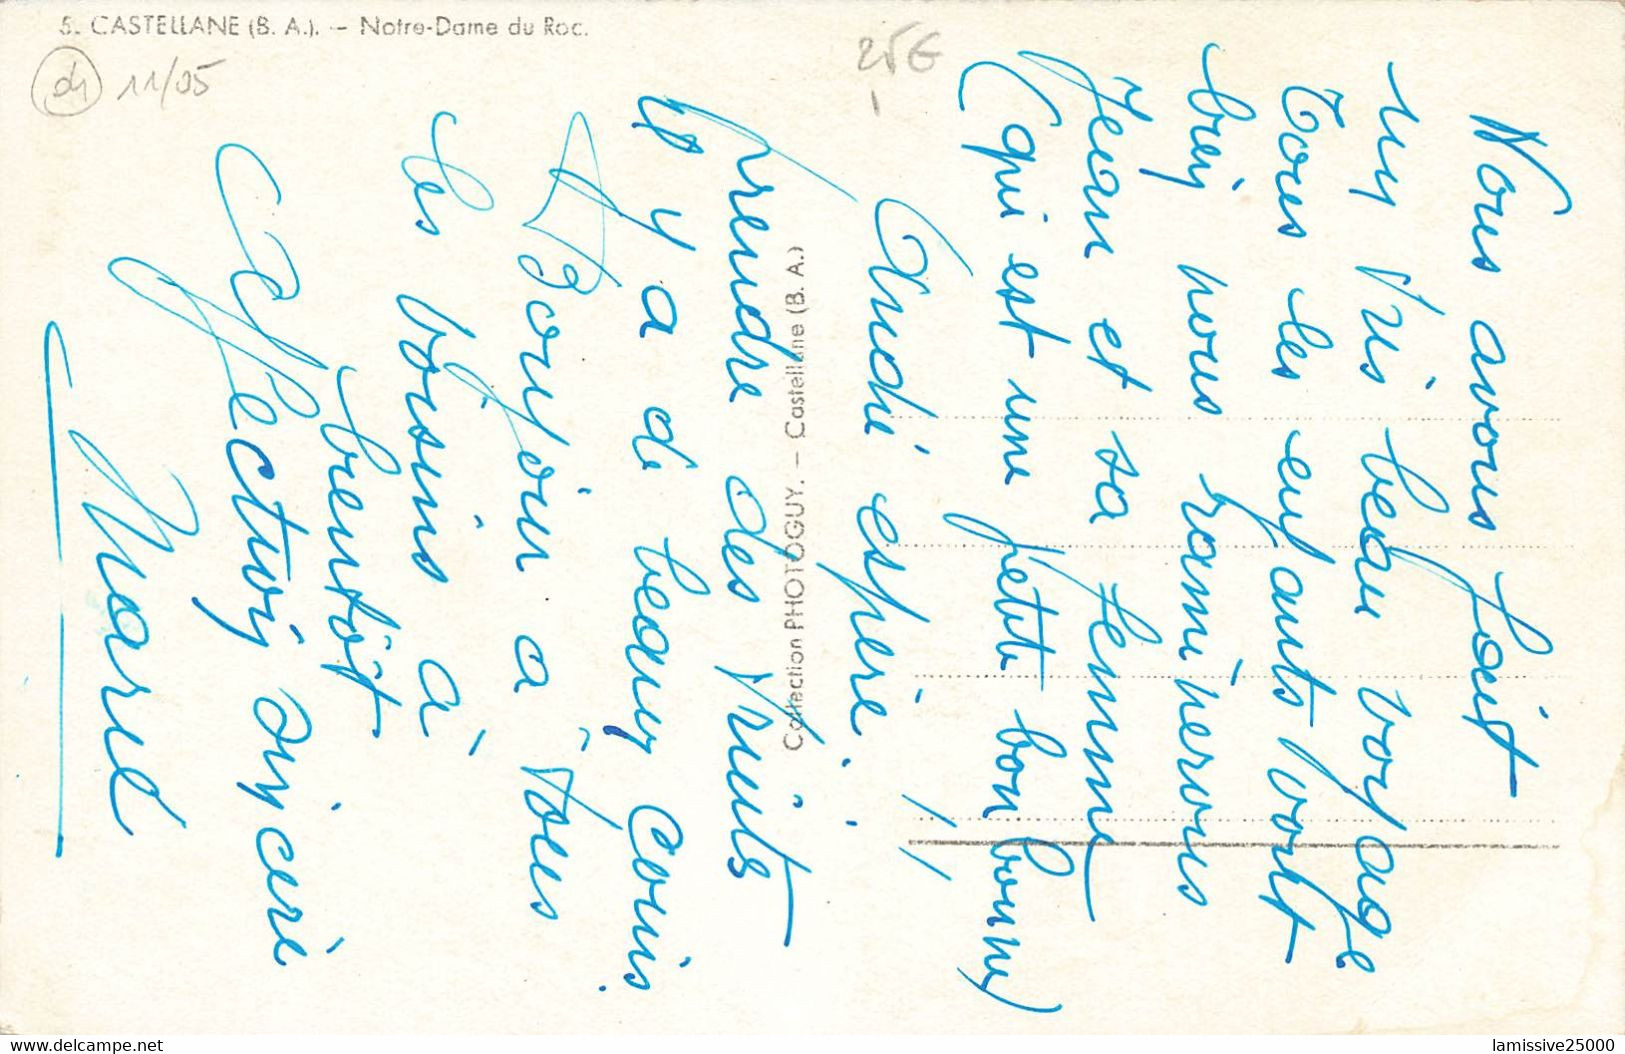 5. CASTELLANE (B. A.). – Notre-Dame du Roc.
04 11/05
25€
Nous avons fait
un très beau voyage
Tous les enfants vont
bien nous raménerons
Jean et sa femme
(qui est une petite bonbonne)
André espère
prendre des truites
il y a de beaux coins
Bonjour à tous
les voisins à
bientôt
Affection sincère
Marie
Collection PHOTOGUY. – Castellane (B. A.)
lamissive25000
www.delcampe.net